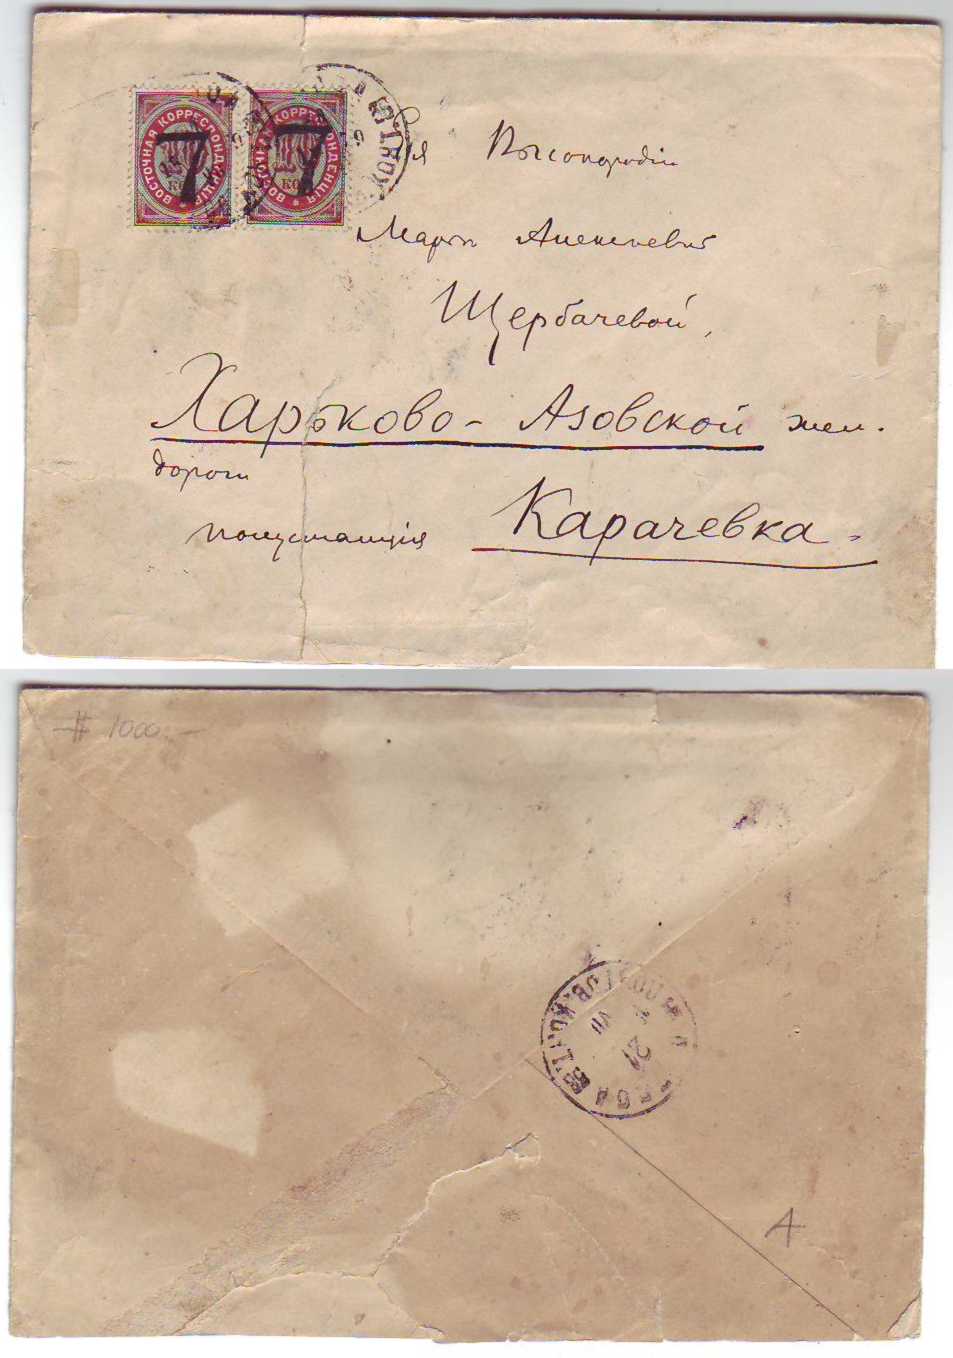 ВОСТОЧНАЯ КОРРЕСПОНДЕНЦІЯ
7
КОП
ВОСТОЧНАЯ КОРРЕСПОНДЕНЦІЯ
7
КОП
Ея Высокородію
Марьи Алексеевнѣ
Щербачевой,
Харьково-Азовской жел.
дороги
полустанція Карачевка.
1000
21
VII
A